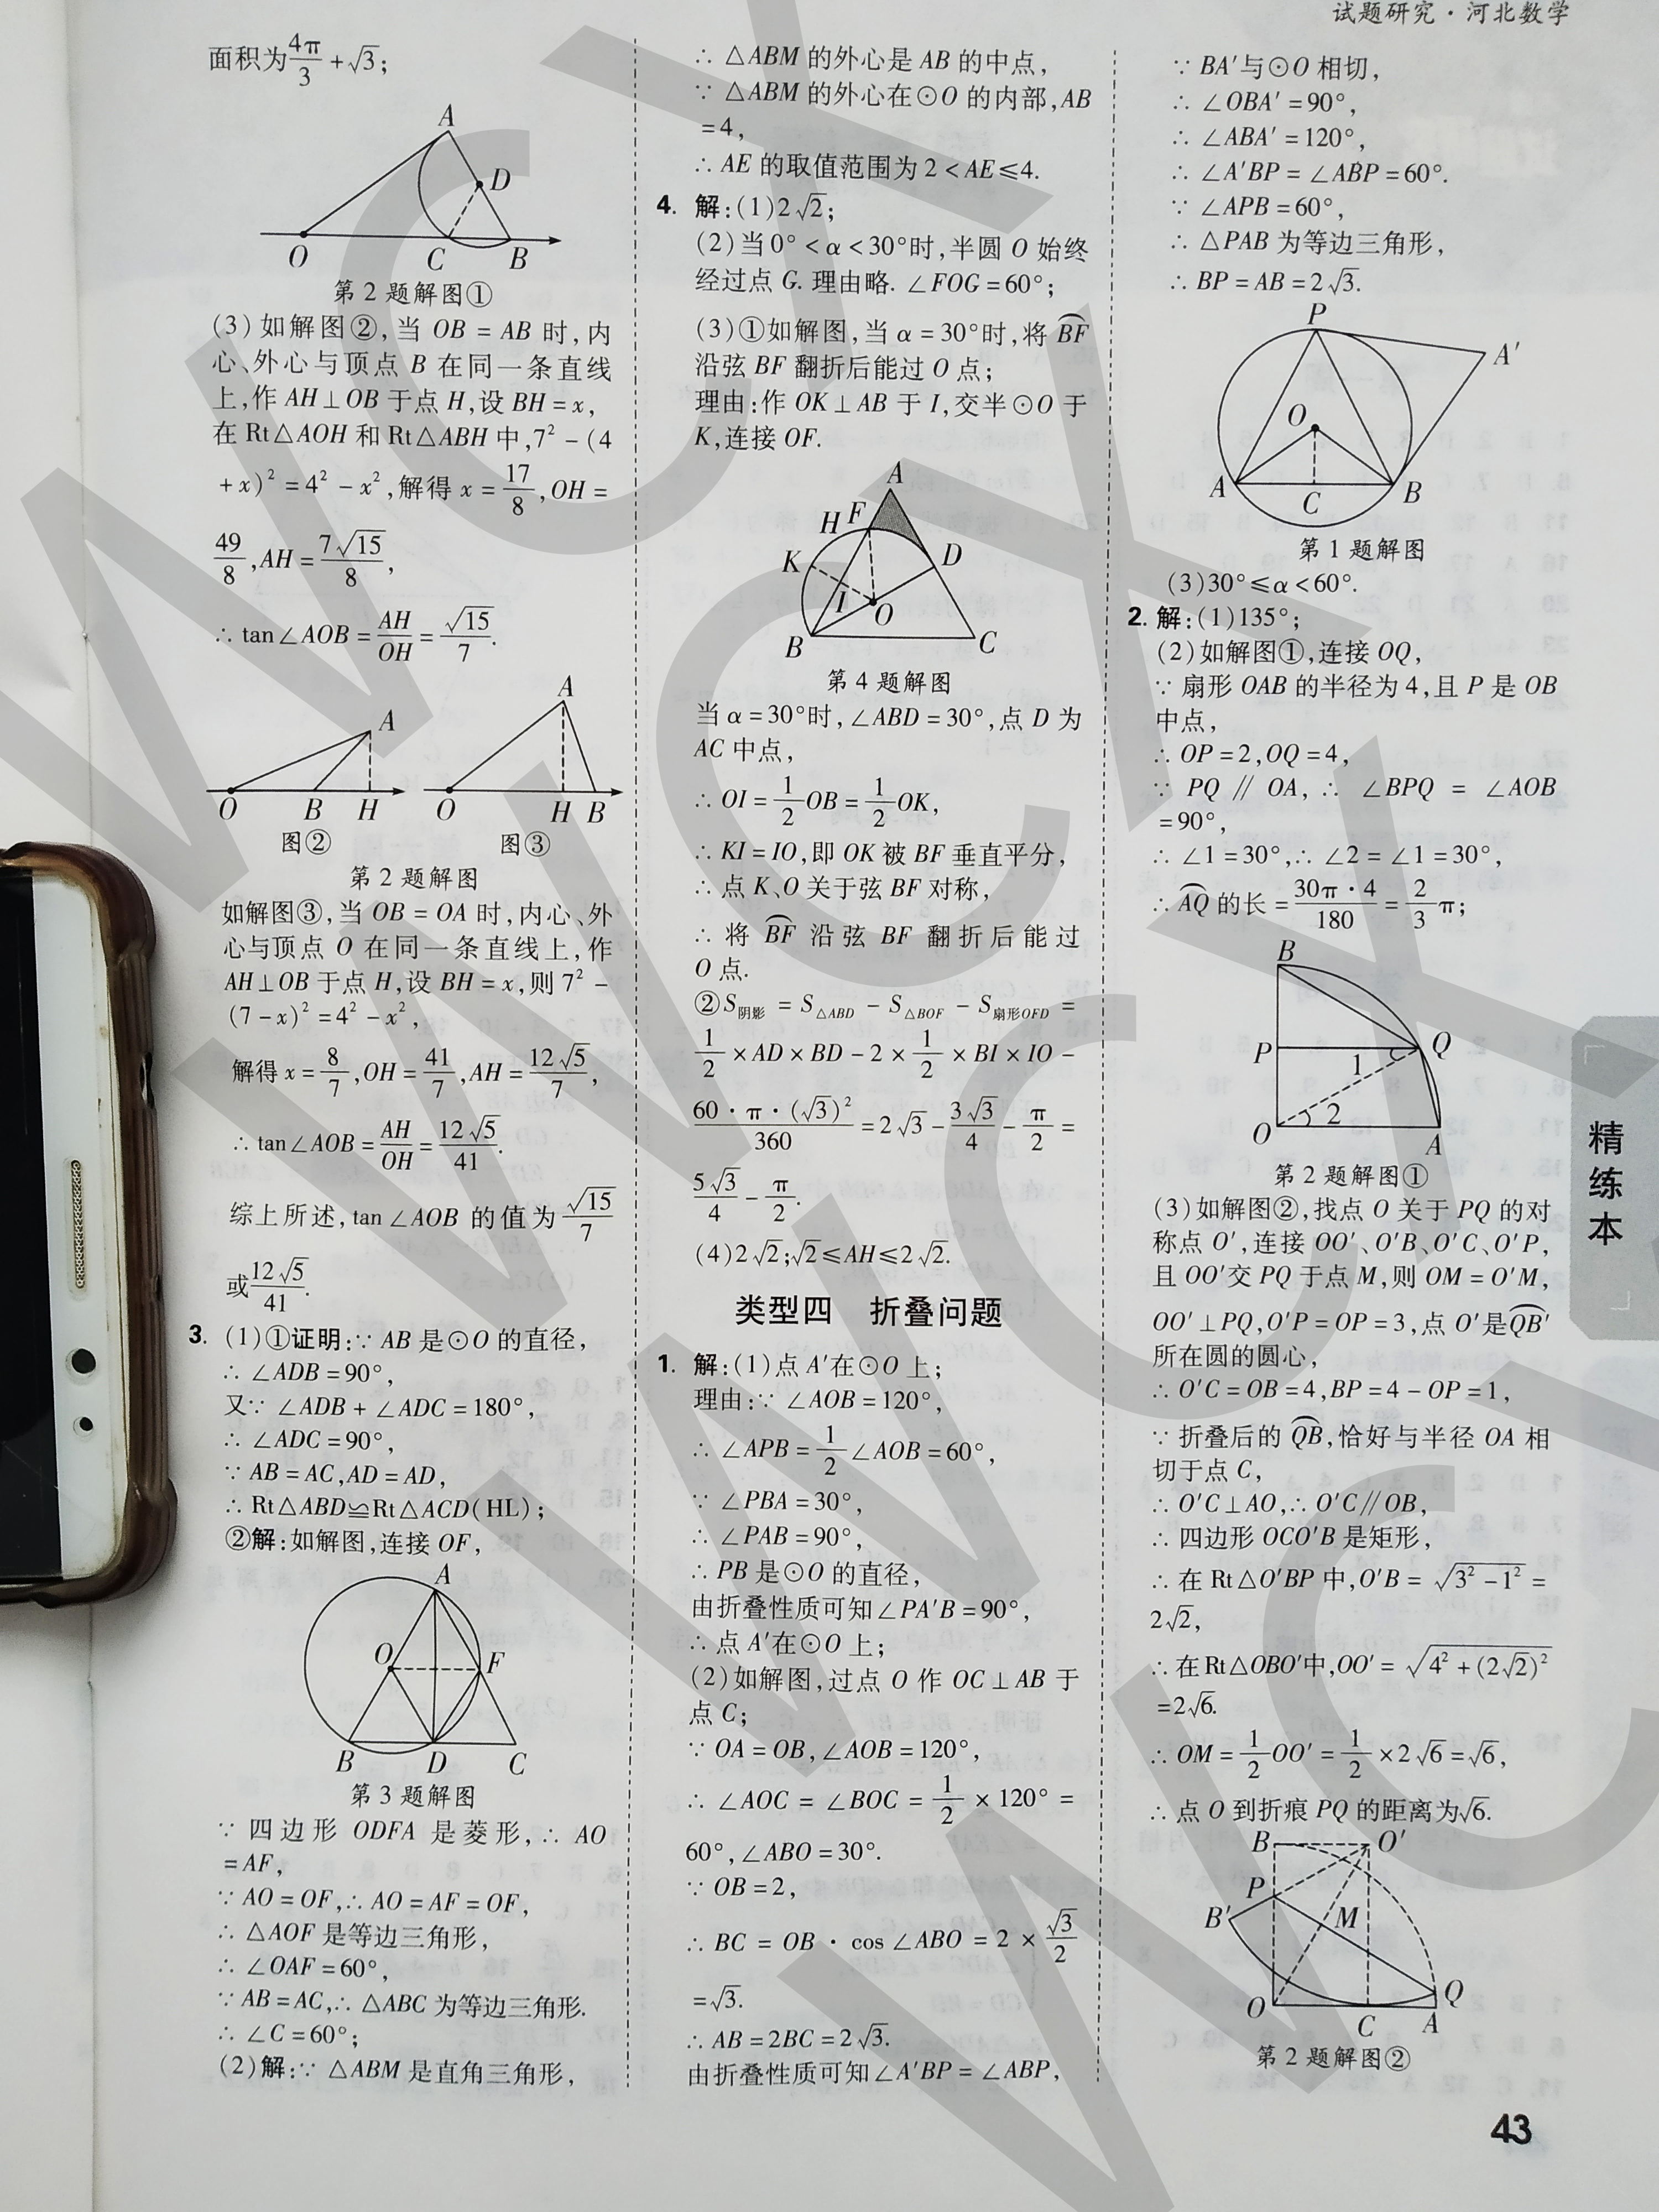 试题研究·河北数学
面积为4π/3+√3;
A
D
O
C
B
第2题解图①
(3)如解图②,当OB=AB时,内
心、外心与顶点B在同一条直线
上,作AH⊥OB于点H,设BH=x,
在Rt△AOH和Rt△ABH中,7²-(4
+x)²=4²-x²,解得x=17/8,OH=
49/8,AH=7√15/8,
∴tan∠AOB=AH/OH=√15/7.
A
O
B
H
图②
A
O
H
B
图③
第2题解图
如解图③,当OB=OA时,内心、外
心与顶点O在同一条直线上,作
AH⊥OB于点H,设BH=x,则7²-
(7-x)²=4²-x²,
解得x=8/7,OH=41/7,AH=12√5/7,
∴tan∠AOB=AH/OH=12√5/41.
综上所述,tan∠AOB的值为√15/7
或12√5/41.
3. (1)①证明:∵AB是⊙O的直径,
∴∠ADB=90°,
又∵∠ADB+∠ADC=180°,
∴∠ADC=90°,
∵AB=AC,AD=AD,
∴Rt△ABD≌Rt△ACD(HL);
②解:如解图,连接OF,
A
O
F
B
D
C
第3题解图
∵四边形ODFA是菱形,∴AO
=AF,
∵AO=OF,∴AO=AF=OF,
∴△AOF是等边三角形,
∴∠OAF=60°,
∵AB=AC,∴△ABC为等边三角形.
∴∠C=60°;
(2)解:∵△ABM是直角三角形,
∴△ABM的外心是AB的中点,
∵△ABM的外心在⊙O的内部,AB
=4,
∴AE的取值范围为2<AE≤4.
4. 解:(1)2√2;
(2)当0°<α<30°时,半圆O始终
经过点G.理由略.∠FOG=60°;
(3)①如解图,当α=30°时,将⌒BF
沿弦BF翻折后能过O点;
理由:作OK⊥AB于I,交半⊙O于
K,连接OF.
A
H
F
K
D
I
O
B
C
第4题解图
当α=30°时,∠ABD=30°,点D为
AC中点,
∴OI=1/2OB=1/2OK,
∴KI=IO,即OK被BF垂直平分,
∴点K、O关于弦BF对称,
∴将⌒BF沿弦BF翻折后能过
O点.
②S阴影=S△ABD-S△BOF-S扇形OFD=
1/2×AD×BD-2×1/2×BI×IO-
60·π·(√3)²/360=2√3-3√3/4-π/2=
5√3/4-π/2.
(4)2√2;√2≤AH≤2√2.
类型四 折叠问题
1. 解:(1)点A′在⊙O上;
理由:∵∠AOB=120°,
∴∠APB=1/2∠AOB=60°,
∵∠PBA=30°,
∴∠PAB=90°,
∴PB是⊙O的直径,
由折叠性质可知∠PA′B=90°,
∴点A′在⊙O上;
(2)如解图,过点O作OC⊥AB于
点C;
∵OA=OB,∠AOB=120°,
∴∠AOC=∠BOC=1/2×120°=
60°,∠ABO=30°.
∵OB=2,
∴BC=OB·cos∠ABO=2×√3/2
=√3.
∴AB=2BC=2√3.
由折叠性质可知∠A′BP=∠ABP,
∵BA′与⊙O相切,
∴∠OBA′=90°,
∴∠ABA′=120°,
∴∠A′BP=∠ABP=60°.
∵∠APB=60°,
∴△PAB为等边三角形,
∴BP=AB=2√3.
P
A′
O
A
C
B
第1题解图
(3)30°≤α<60°.
2. 解:(1)135°;
(2)如解图①,连接OQ,
∵扇形OAB的半径为4,且P是OB
中点,
∴OP=2,OQ=4,
∵PQ∥OA,∴∠BPQ=∠AOB
=90°,
∴∠1=30°,∴∠2=∠1=30°,
∴⌒AQ的长=30π·4/180=2/3π;
B
P
1
Q
2
O
A
第2题解图①
(3)如解图②,找点O关于PQ的对
称点O′,连接OO′、O′B、O′C、O′P,
且OO′交PQ于点M,则OM=O′M,
OO′⊥PQ,O′P=OP=3,点O′是⌒QB′
所在圆的圆心,
∴O′C=OB=4,BP=4-OP=1,
∵折叠后的⌒QB,恰好与半径OA相
切于点C,
∴O′C⊥AO,∴O′C∥OB,
∴四边形OCO′B是矩形,
∴在Rt△O′BP中,O′B=√3²-1²=
2√2,
∴在Rt△OBO′中,OO′=√4²+(2√2)²
=2√6.
∴OM=1/2OO′=1/2×2√6=√6,
∴点O到折痕PQ的距离为√6.
B
O′
P
B′
M
Q
O
C
A
第2题解图②
精练本
43
WCX
WCX
WCX